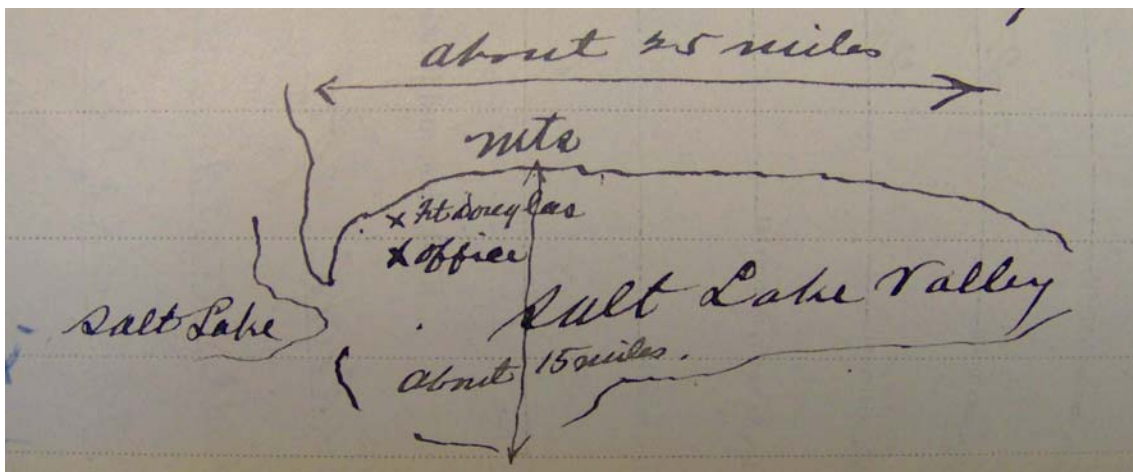 About 25 miles
mts
x Ft Douglas
x office
Salt Lake Valley
Salt Lake
About 15 miles.